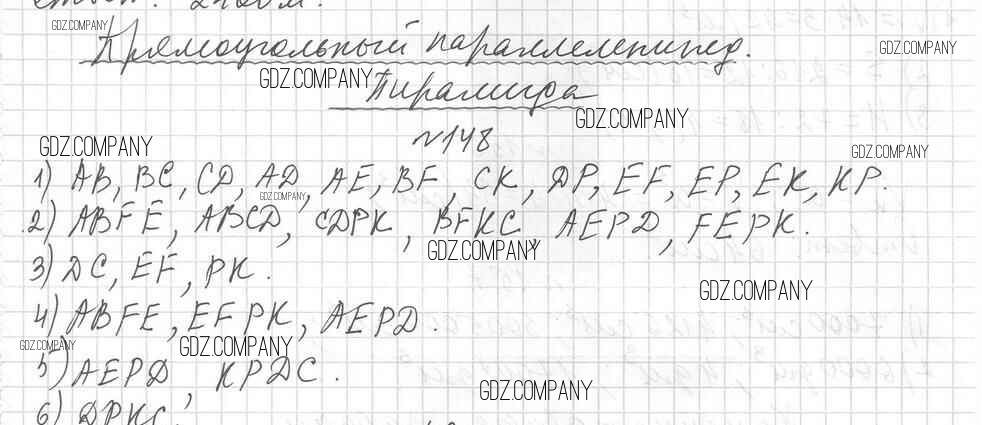 ответ: 2420 м.
Прямоугольный параллелепипед.
Пирамида
№148
1) AB, BC, CD, AD, AE, BF, CK, DP, EF, EP, EK, KP.
2) ABFE, ABCD, CDPK, BFKC, AEPD, FEPK.
3) DC, EF, PK.
4) ABFE, EFPK, AEPD.
5) AEPD, KPDC.
6) DPKC,
GDZ.COMPANY
GDZ.COMPANY
GDZ.COMPANY
GDZ.COMPANY
GDZ.COMPANY
GDZ.COMPANY
GDZ.COMPANY
GDZ.COMPANY
GDZ.COMPANY
GDZ.COMPANY
GDZ.COMPANY
GDZ.COMPANY